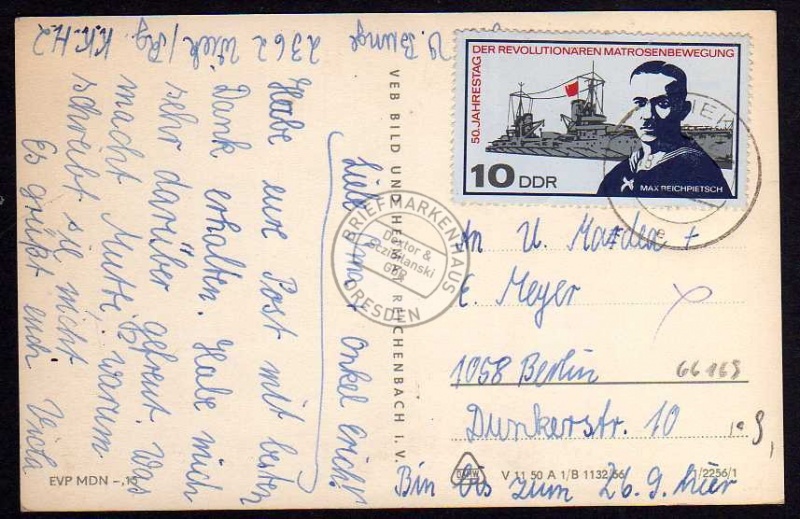 V. Bunge
2362 Wiek/Rg. K.K.H.2
Liebe Oma + Onkel Erich!
Habe eure Post mit besten
Dank erhalten. Habe mich
sehr darüber gefreut. Was
macht Mutti? warum
schreibt sie nicht
Es grüßt euch Viola
EVP MDN -,15
VEB BILD UND HEIMAT REICHENBACH I. V.
50. JAHRESTAG DER REVOLUTIONÄREN MATROSENBEWEGUNG
10 DDR
MAX REICHPIETSCH
BRIEFMARKENHAUS
Dextor &
GbR
DRESDEN
An U. +
E. Meyer
1058 Berlin
66169
Dunkerstr. 10
V 11 50 A 1/B 1132/66 1/2256/1
Bin bis zum 26.9. hier